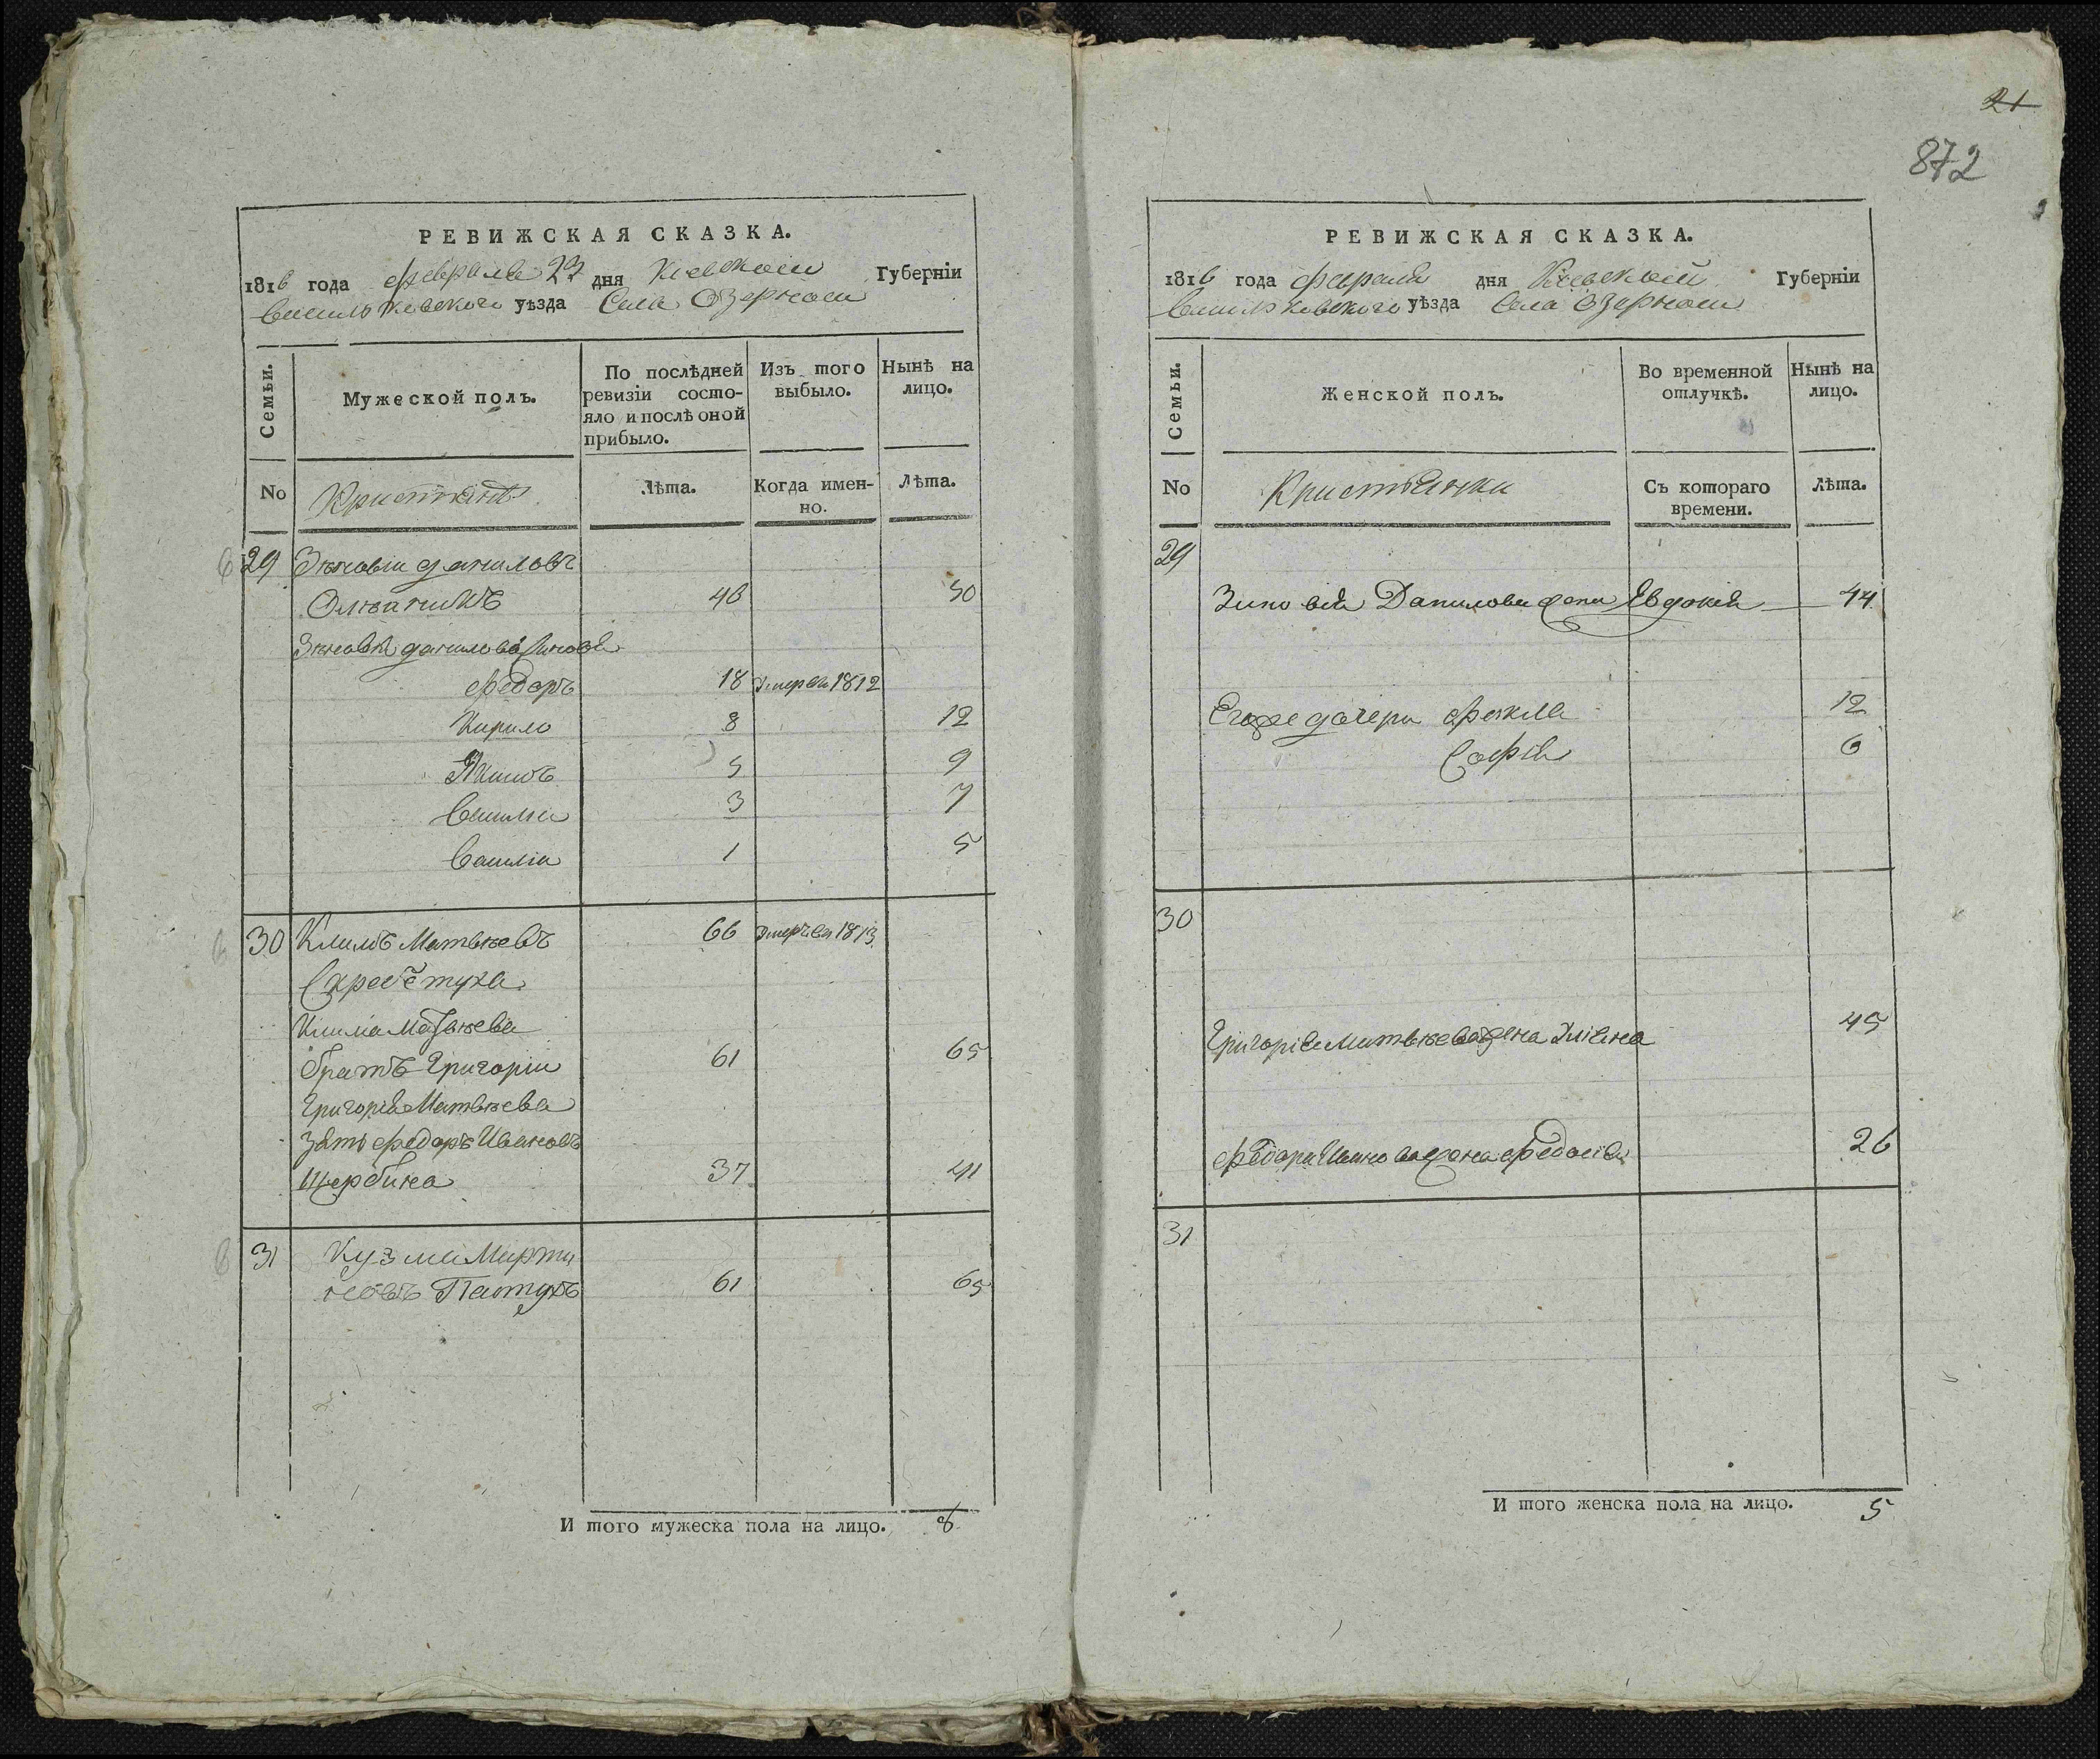 РЕВИЖСКАЯ СКАЗКА.
1816 года февраля 23 дня Киевской Губерніи
Васильковского уѣзда Села Озерной
Семьи.
Мужеской полъ.
По послѣдней ревизіи состо-
яло и послѣ оной
прибыло.
Изъ того
выбыло.
Нынѣ на
лицо.
No
Лѣта.
Когда имен-
но.
Лѣта.
29 Зѣновіи даниловъ
46 50
Зѣновія данилова синовя
федоръ 18 Умеръ 1812
Кирило 8 12
Якимъ 5 9
3 7
Василіи 1 5
30 Климъ Матвѣевъ 66 Умеръ 1813
Клима Матвѣева
братъ Григоріи 61 65
Григорія Матвѣева
зять федоръ Ивановъ
Щербина 37 41
31 Кузма Марти
новъ Пастухъ 61 65
И того мужеска пола на лицо. 8
21
872
РЕВИЖСКАЯ СКАЗКА.
1816 года февраля дня Киевской Губерніи
Васильковского уѣзда Села Озерной
Семьи.
Женской полъ.
Во временной
отлучкѣ.
Нынѣ на
лицо.
No
Съ котораго
времени.
Лѣта.
29
Зиновія Данилова жена Явдокія 44
Егоже дочери фекла 12
Софія 6
30
Григорія Матвѣева жена Уліяна 45
федора Иванова жена федосія 26
31
И того женска пола на лицо. 5